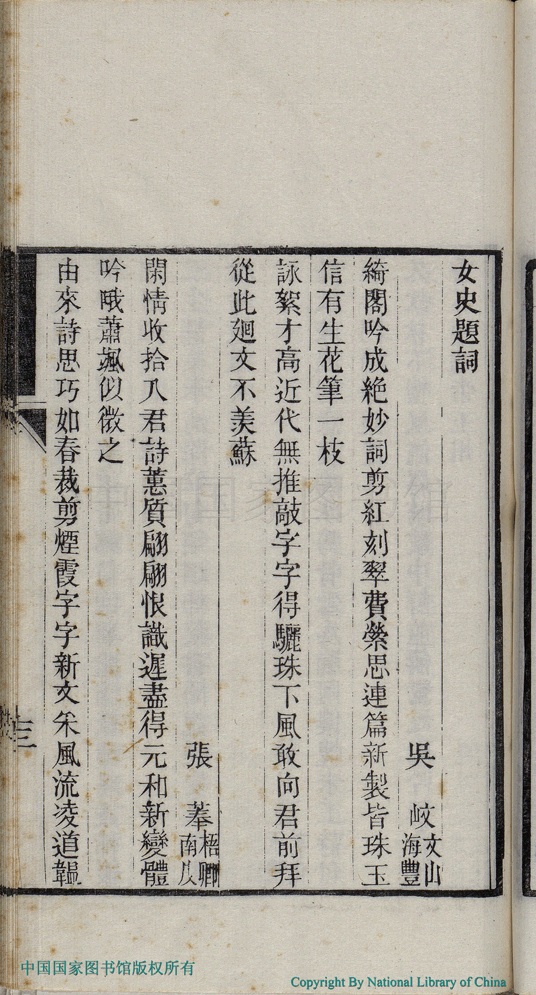 女史題詞
吳 峧 文山 海豐
綺閣吟成絶妙詞剪紅刻翠費縈思連篇新製皆珠玉
信有生花筆一枝
詠絮才高近代無推敲字字得驪珠下風敢向君前拜
從此廻文不羨蘇
張 蓁 梧卿 南皮
閑情收拾入君詩蕙質翩翩恨識遲盡得元和新變體
吟哦蕭颯似微之
由來詩思巧如春裁剪煙霞字字新文采風流凌道韞
十三
中国国家图书馆版权所有
Copyright By National Library of China